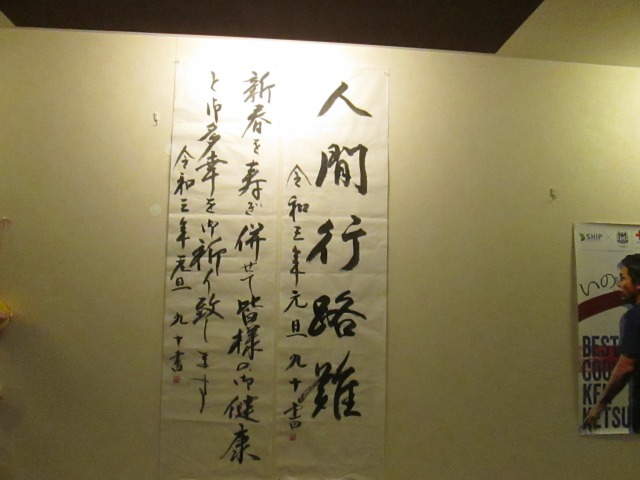 人間行路難
令和三年元旦 九十書
新春を寿ぎ併せて皆様の御健康
と御多幸を御祈り致します
令和三年元旦 九十書
SHIP
いの
BEST
COO
KE
KETSU